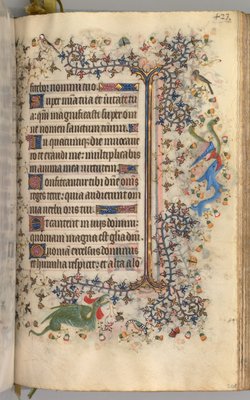 fitebor nomini tuo
Super mīa tua et ueritate tu
a: qm̄ magnificasti super om
ne nomen sanctum tuum.
In quacumque die inuocaue
ro te exaudi me: multiplicabis
in anima mea uirtutem.
Confiteantur tibi dn̄e om̄s
reges terre: quia audierunt om
nia uerba oris tui.
Et cantent in uiis domini:
quoniam magna est glīa dn̄i.
Quoniam excelsus dominus
et humilia respicit: et alta a lo